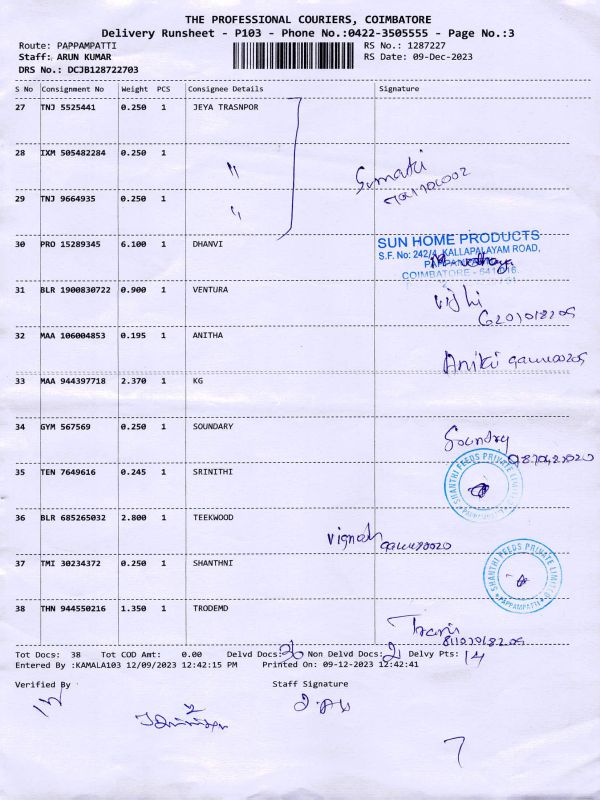 THE PROFESSIONAL COURIERS, COIMBATORE
Delivery Runsheet - P103 - Phone No.:0422-3505555 - Page No.:3
Route: PAPPAMPATTI RS No.: 1287227
Staff: ARUN KUMAR RS Date: 09-Dec-2023
DRS No.: DCJB128722703
S No Consignment No Weight PCS Consignee Details Signature
27 TNJ 5525441 0.250 1 JEYA TRASNPOR
28 IXM 505482284 0.250 1 "
Sumathi
29 TNJ 9664935 0.250 1 "
30 PRO 15289345 6.100 1 DHANVI
SUN HOME PRODUCTS
S.F. No: 242/4, KALLAPALAYAM ROAD,
COIMBATORE - 641 016.
31 BLR 1900830722 0.900 1 VENTURA
32 MAA 106004853 0.195 1 ANITHA
33 MAA 944397718 2.370 1 KG
34 GYM 567569 0.250 1 SOUNDARY
Soundry
35 TEN 7649616 0.245 1 SRINITHI
SHANTHI FEEDS PRIVATE LIMITED
PAPPAMPATTI
36 BLR 685265032 2.800 1 TEEKWOOD
Vignesh
37 TMI 30234372 0.250 1 SHANTHNI
SHANTHI FEEDS PRIVATE LIMITED
PAPPAMPATTI
38 THN 944550216 1.350 1 TRODEMD
Tot Docs: 38 Tot COD Amt: 0.00 Delvd Docs: Non Delvd Docs: 2 Delvy Pts: 14
Entered By :KAMALA103 12/09/2023 12:42:15 PM Printed On: 09-12-2023 12:42:41
Verified By Staff Signature
7